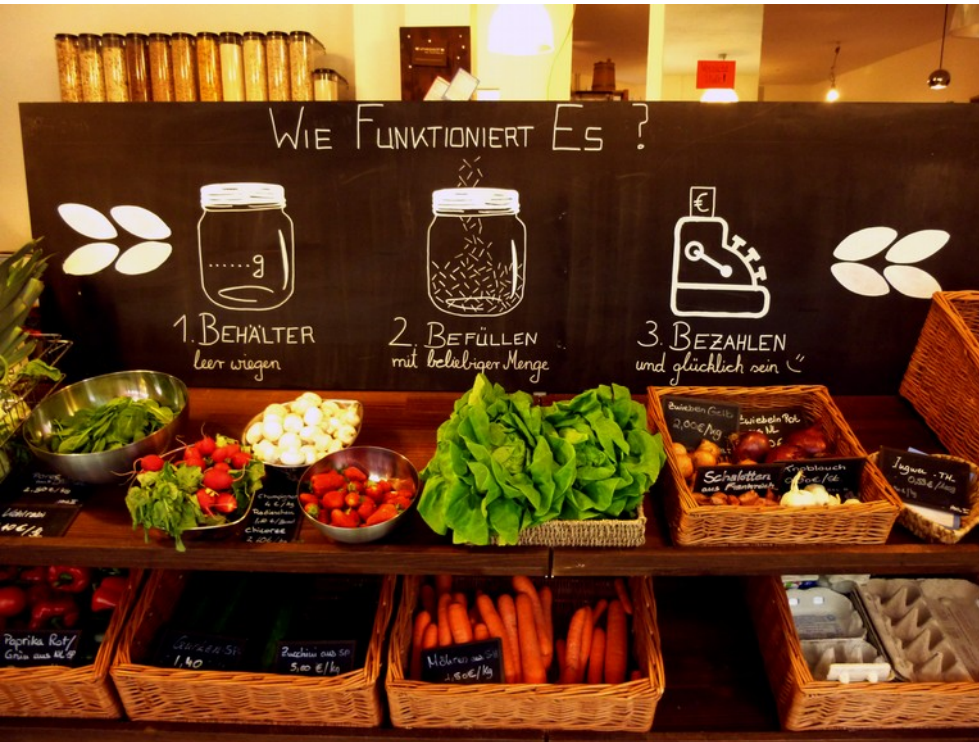 WIE FUNKTIONIERT ES ?
......g
€
1. BEHÄLTER
leer wiegen
2. BEFÜLLEN
mit beliebiger Menge
3. BEZAHLEN
und glücklich sein
Zwiebeln Gelb
2,00€/kg
Zwiebeln Rot
Schalotten
aus Frankreich
Knoblauch
Ingwer
Radieschen
Chicoree
Paprika Rot/
Grün aus
Gurken
1,40
Zucchini aus
5,00 €/kg
Möhren aus
1,80€/kg